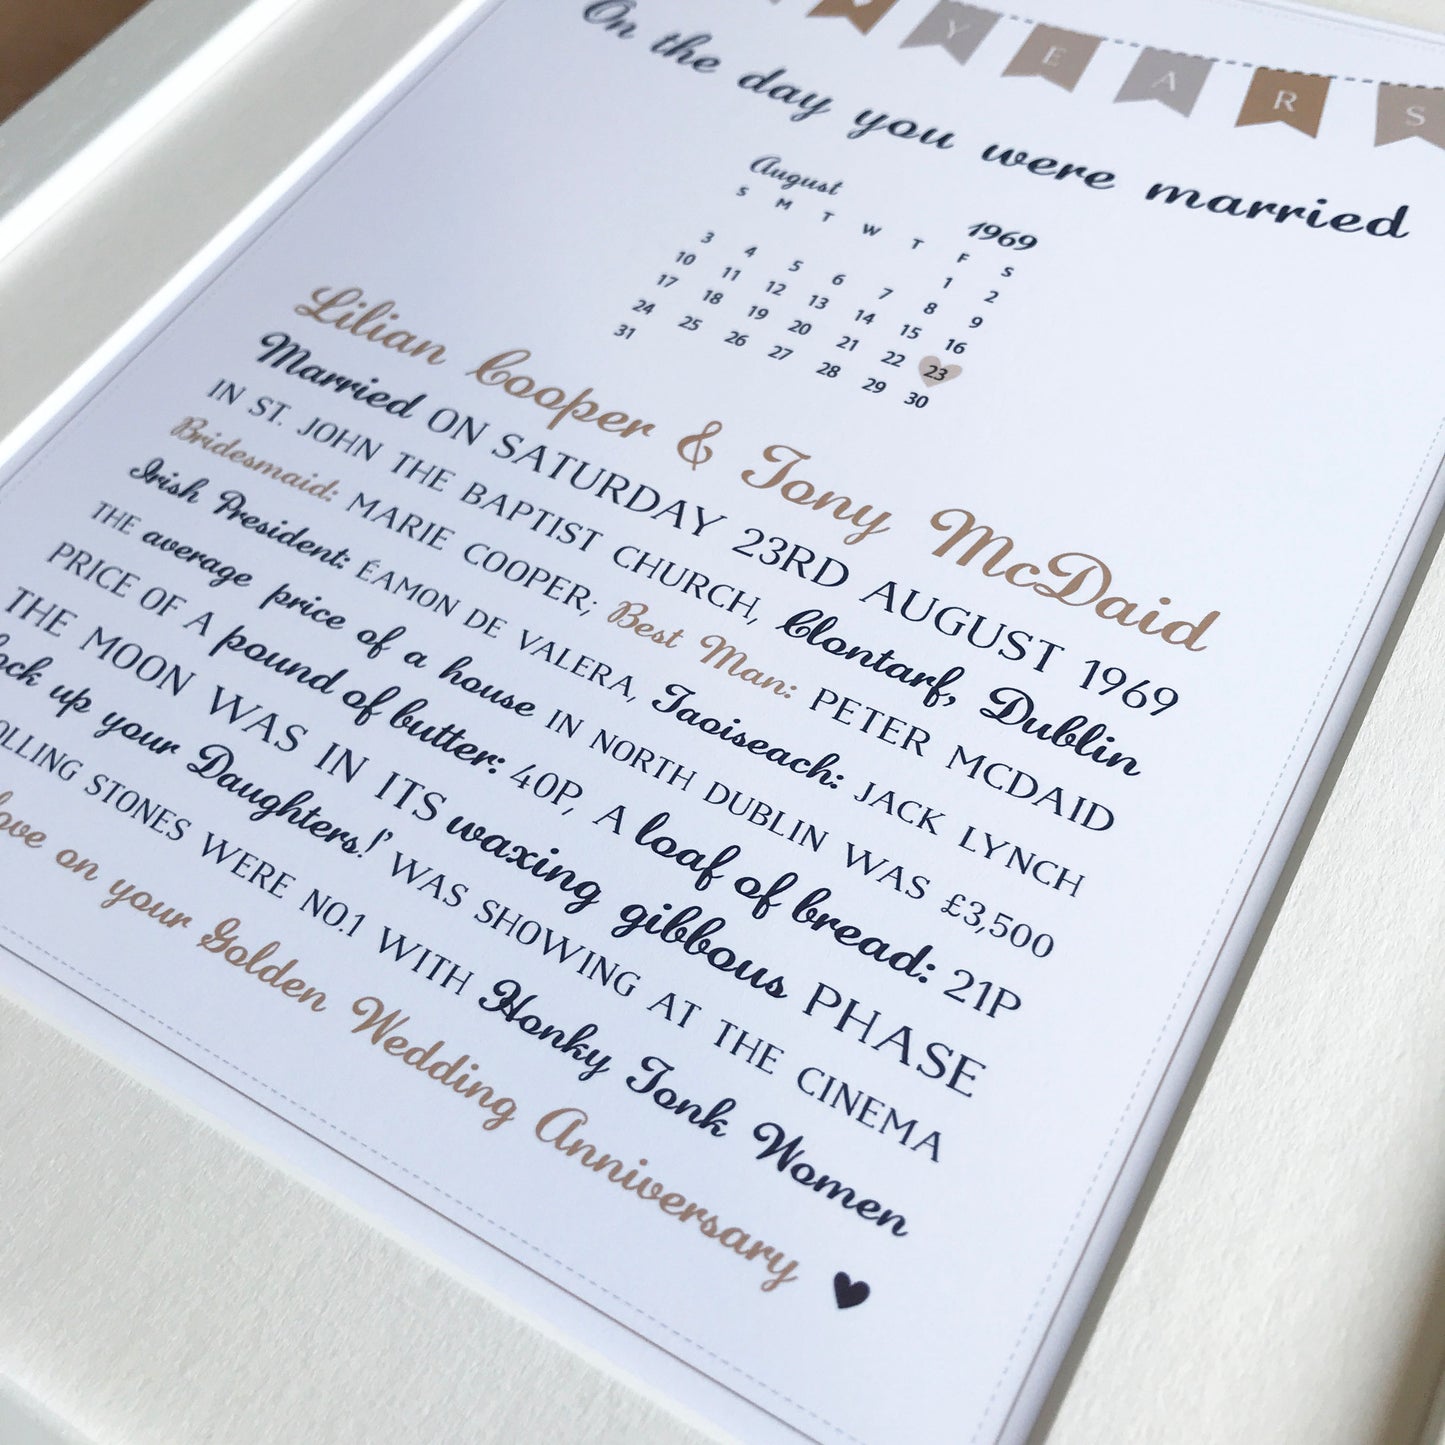 YEARS
On the day you were married
August 1969
S M T W T F S
1 2
3 4 5 6 7 8 9
10 11 12 13 14 15 16
17 18 19 20 21 22 23
24 25 26 27 28 29 30
31
Lilian Cooper & Tony McDaid
Married ON SATURDAY 23RD AUGUST 1969
IN ST. JOHN THE BAPTIST CHURCH, Clontarf, Dublin
Bridesmaid: MARIE COOPER; Best Man: PETER MCDAID
Irish President: ÉAMON DE VALERA, Taoiseach: JACK LYNCH
THE average price of a house IN NORTH DUBLIN WAS £3,500
PRICE OF A pound of butter: 40P, A loaf of bread: 21P
THE MOON WAS IN ITS waxing gibbous PHASE
up your Daughters!' WAS SHOWING AT THE CINEMA
STONES WERE NO.1 WITH Honky Tonk Women
love on your Golden Wedding Anniversary